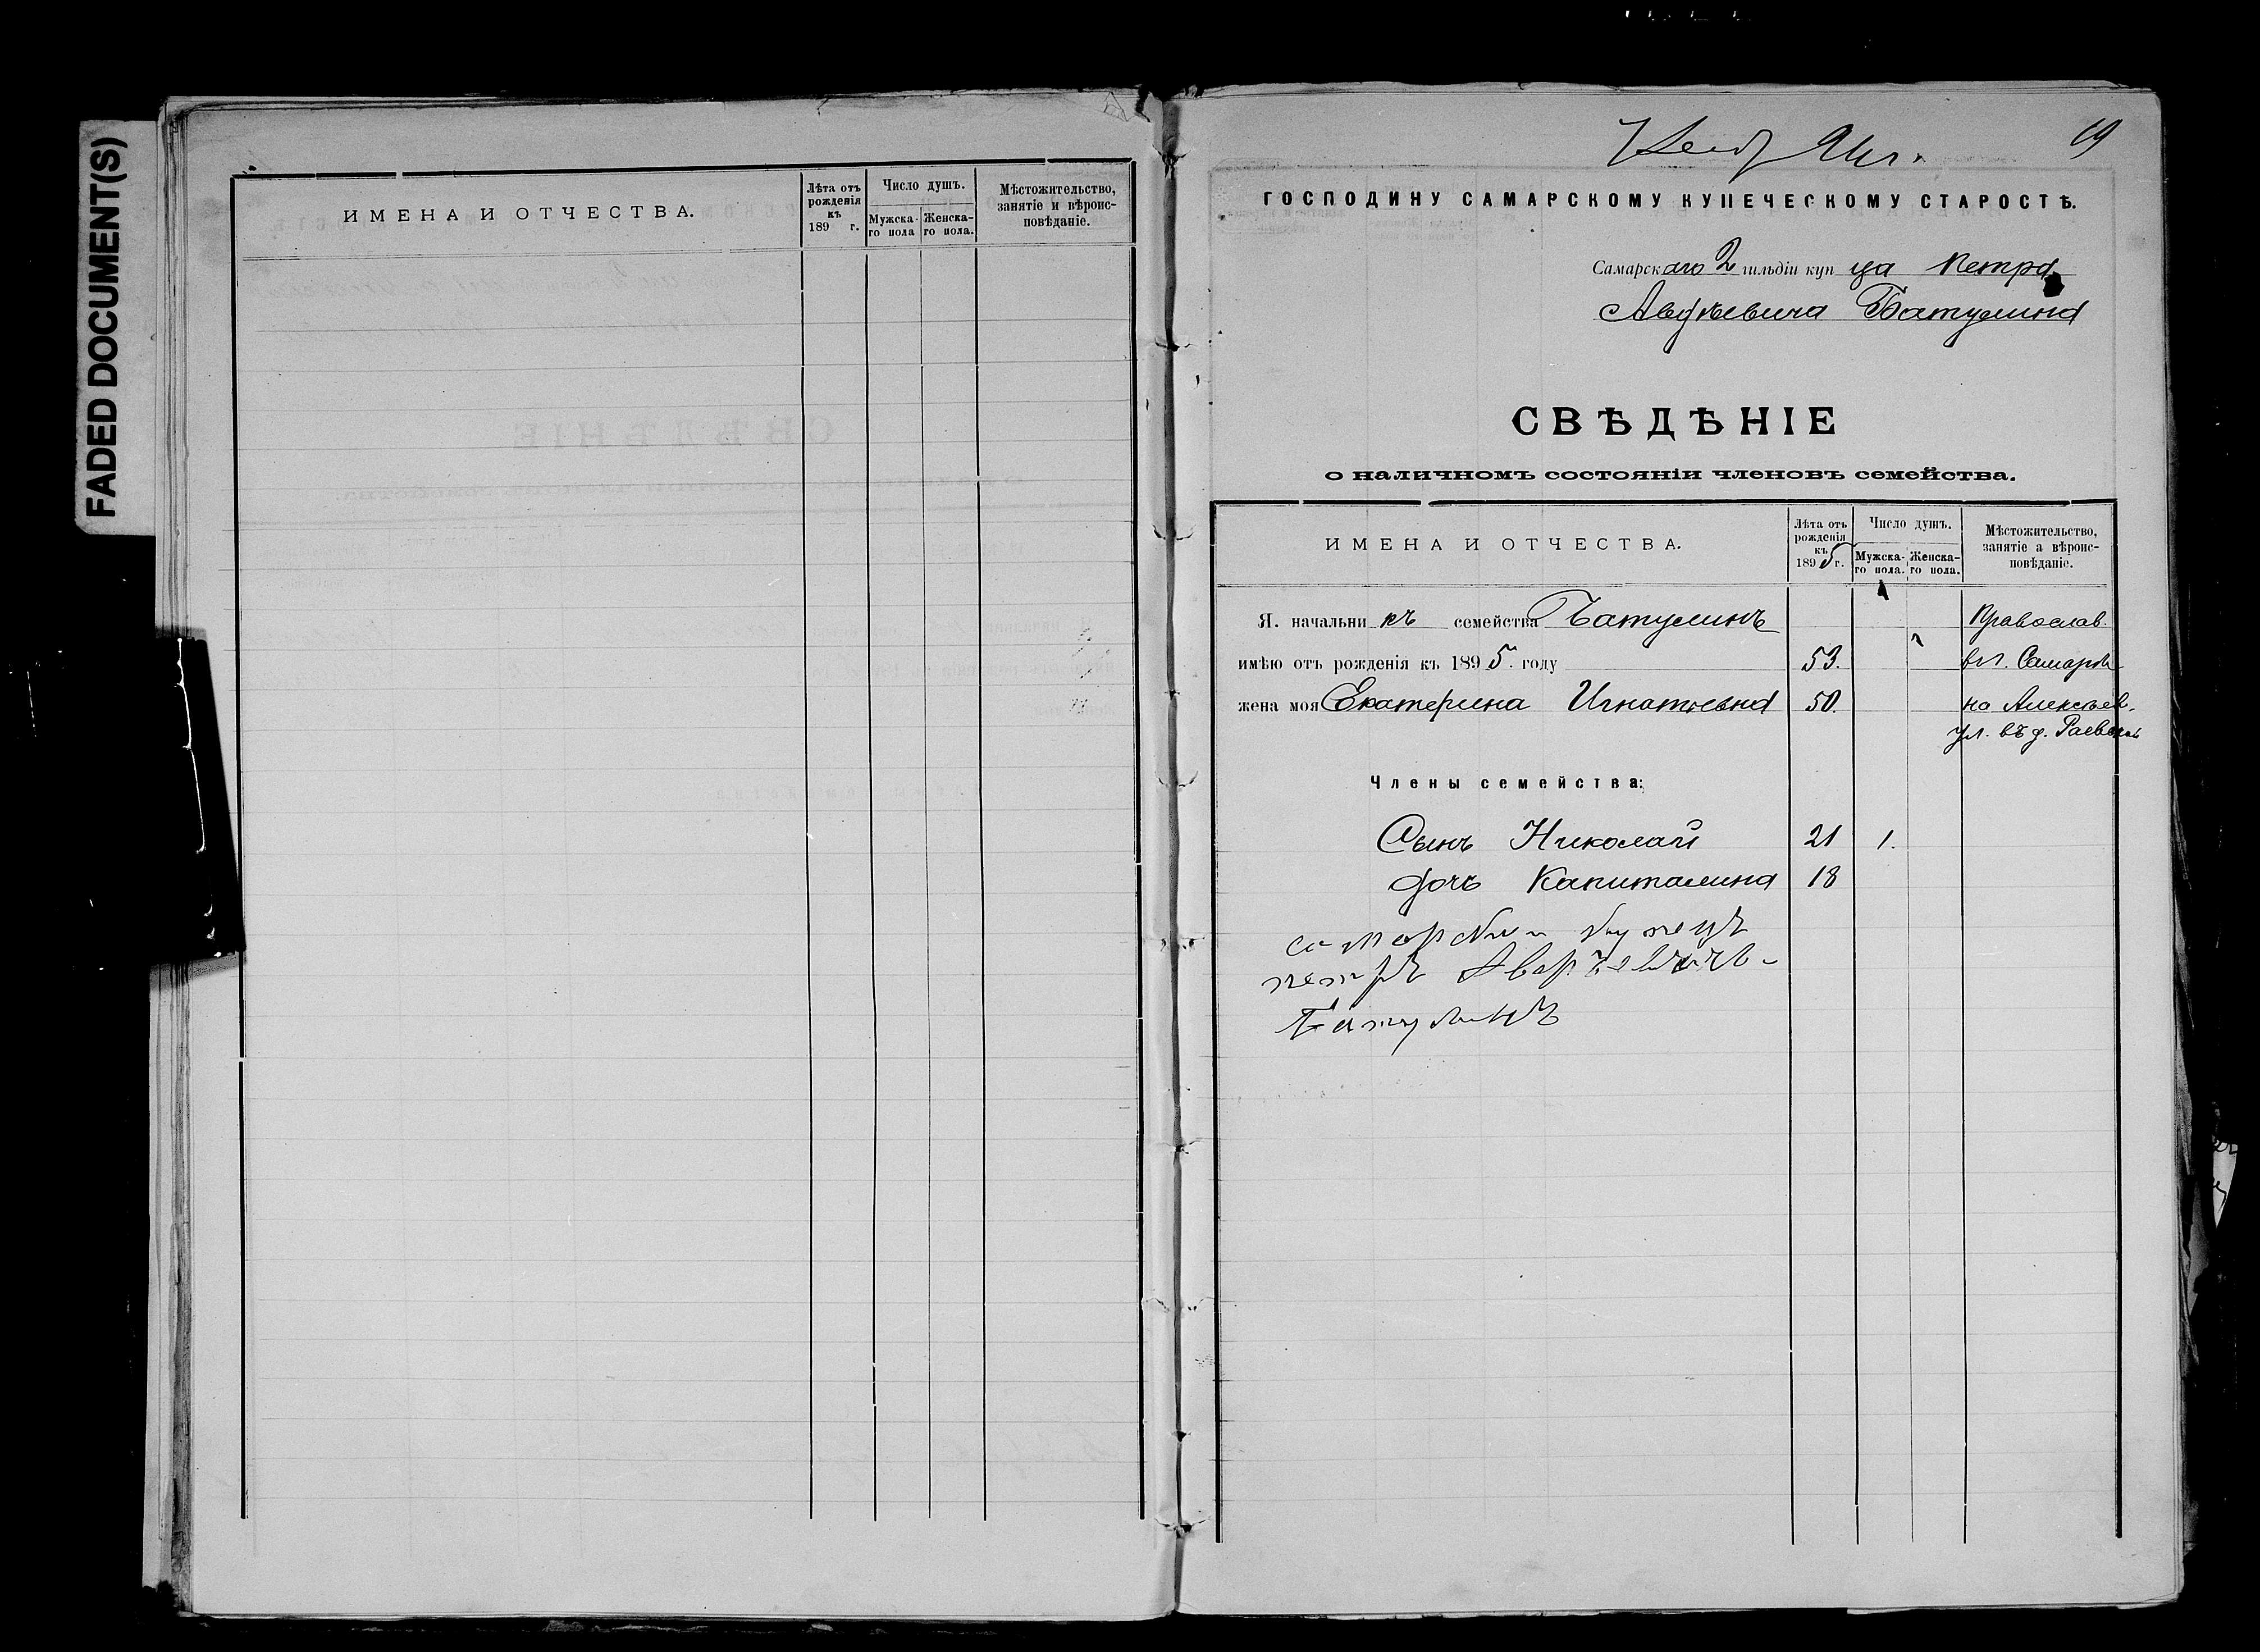 FADED DOCUMENT(S)
ИМЕНА И ОТЧЕСТВА.
Лѣта отъ рожденія къ 189 г.
Число душъ.
Мужска-го пола
Женска-го пола.
Мѣстожительство, занятіе и вѣроис-повѣданіе.
19
ГОСПОДИНУ САМАРСКОМУ КУПЕЧЕСКОМУ СТАРОСТѢ.
Самарскаго 2 гильдіи купца Петра
Авдѣевича Батулина
СВѢДѢНІЕ
о наличномъ состояніи членовъ семейства.
ИМЕНА И ОТЧЕСТВА.
Лѣта отъ рожденія къ 1895 г.
Число душъ.
Мужска-го пола.
Женска-го пола.
Мѣстожительство, занятіе а вѣроис-повѣданіе.
Я. начальникъ семейства Батулинъ Православ.
имѣю отъ рожденія къ 1895. году 53. въ г. Самарѣ
жена моя Екатерина Игнатьевна 50. на Алексѣев.
ул. въ д.
Члены семейства:
Сынъ Николай 21 1.
дочь Капиталина 18
самарски купецъ
петръ
Батулинъ